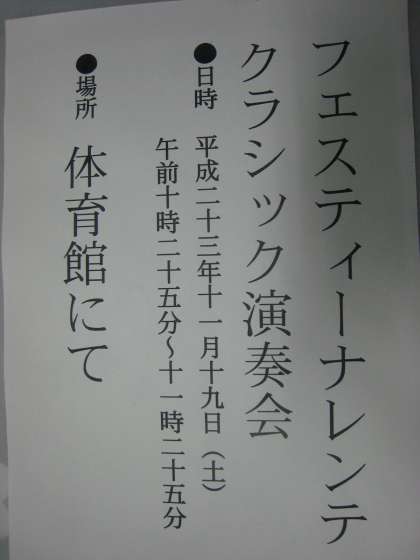 フェスティーナレンテ
クラシック演奏会
●日時 平成二十三年十一月十九日（土）
午前十時二十五分～十一時二十五分
●場所 体育館にて